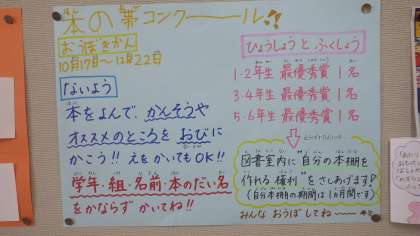 本の帯コンクール!!
おうぼきかん
10月17日～12月22日
ないよう
本をよんで、かんそうや
オススメのところをおびに
かこう!! えをかいてもOK!!
学年・組・名前・本のだい名
をかならずかいてね!!
ひょうしょうとふくしょう
1・2年生 最優秀賞 1名
3・4年生 最優秀賞 1名
5・6年生 最優秀賞 1名
図書室内に"自分の本棚を
作れる権利"をさしあげます!
(自分本棚の期間は1ヵ月間です)
みんなおうぼしてね